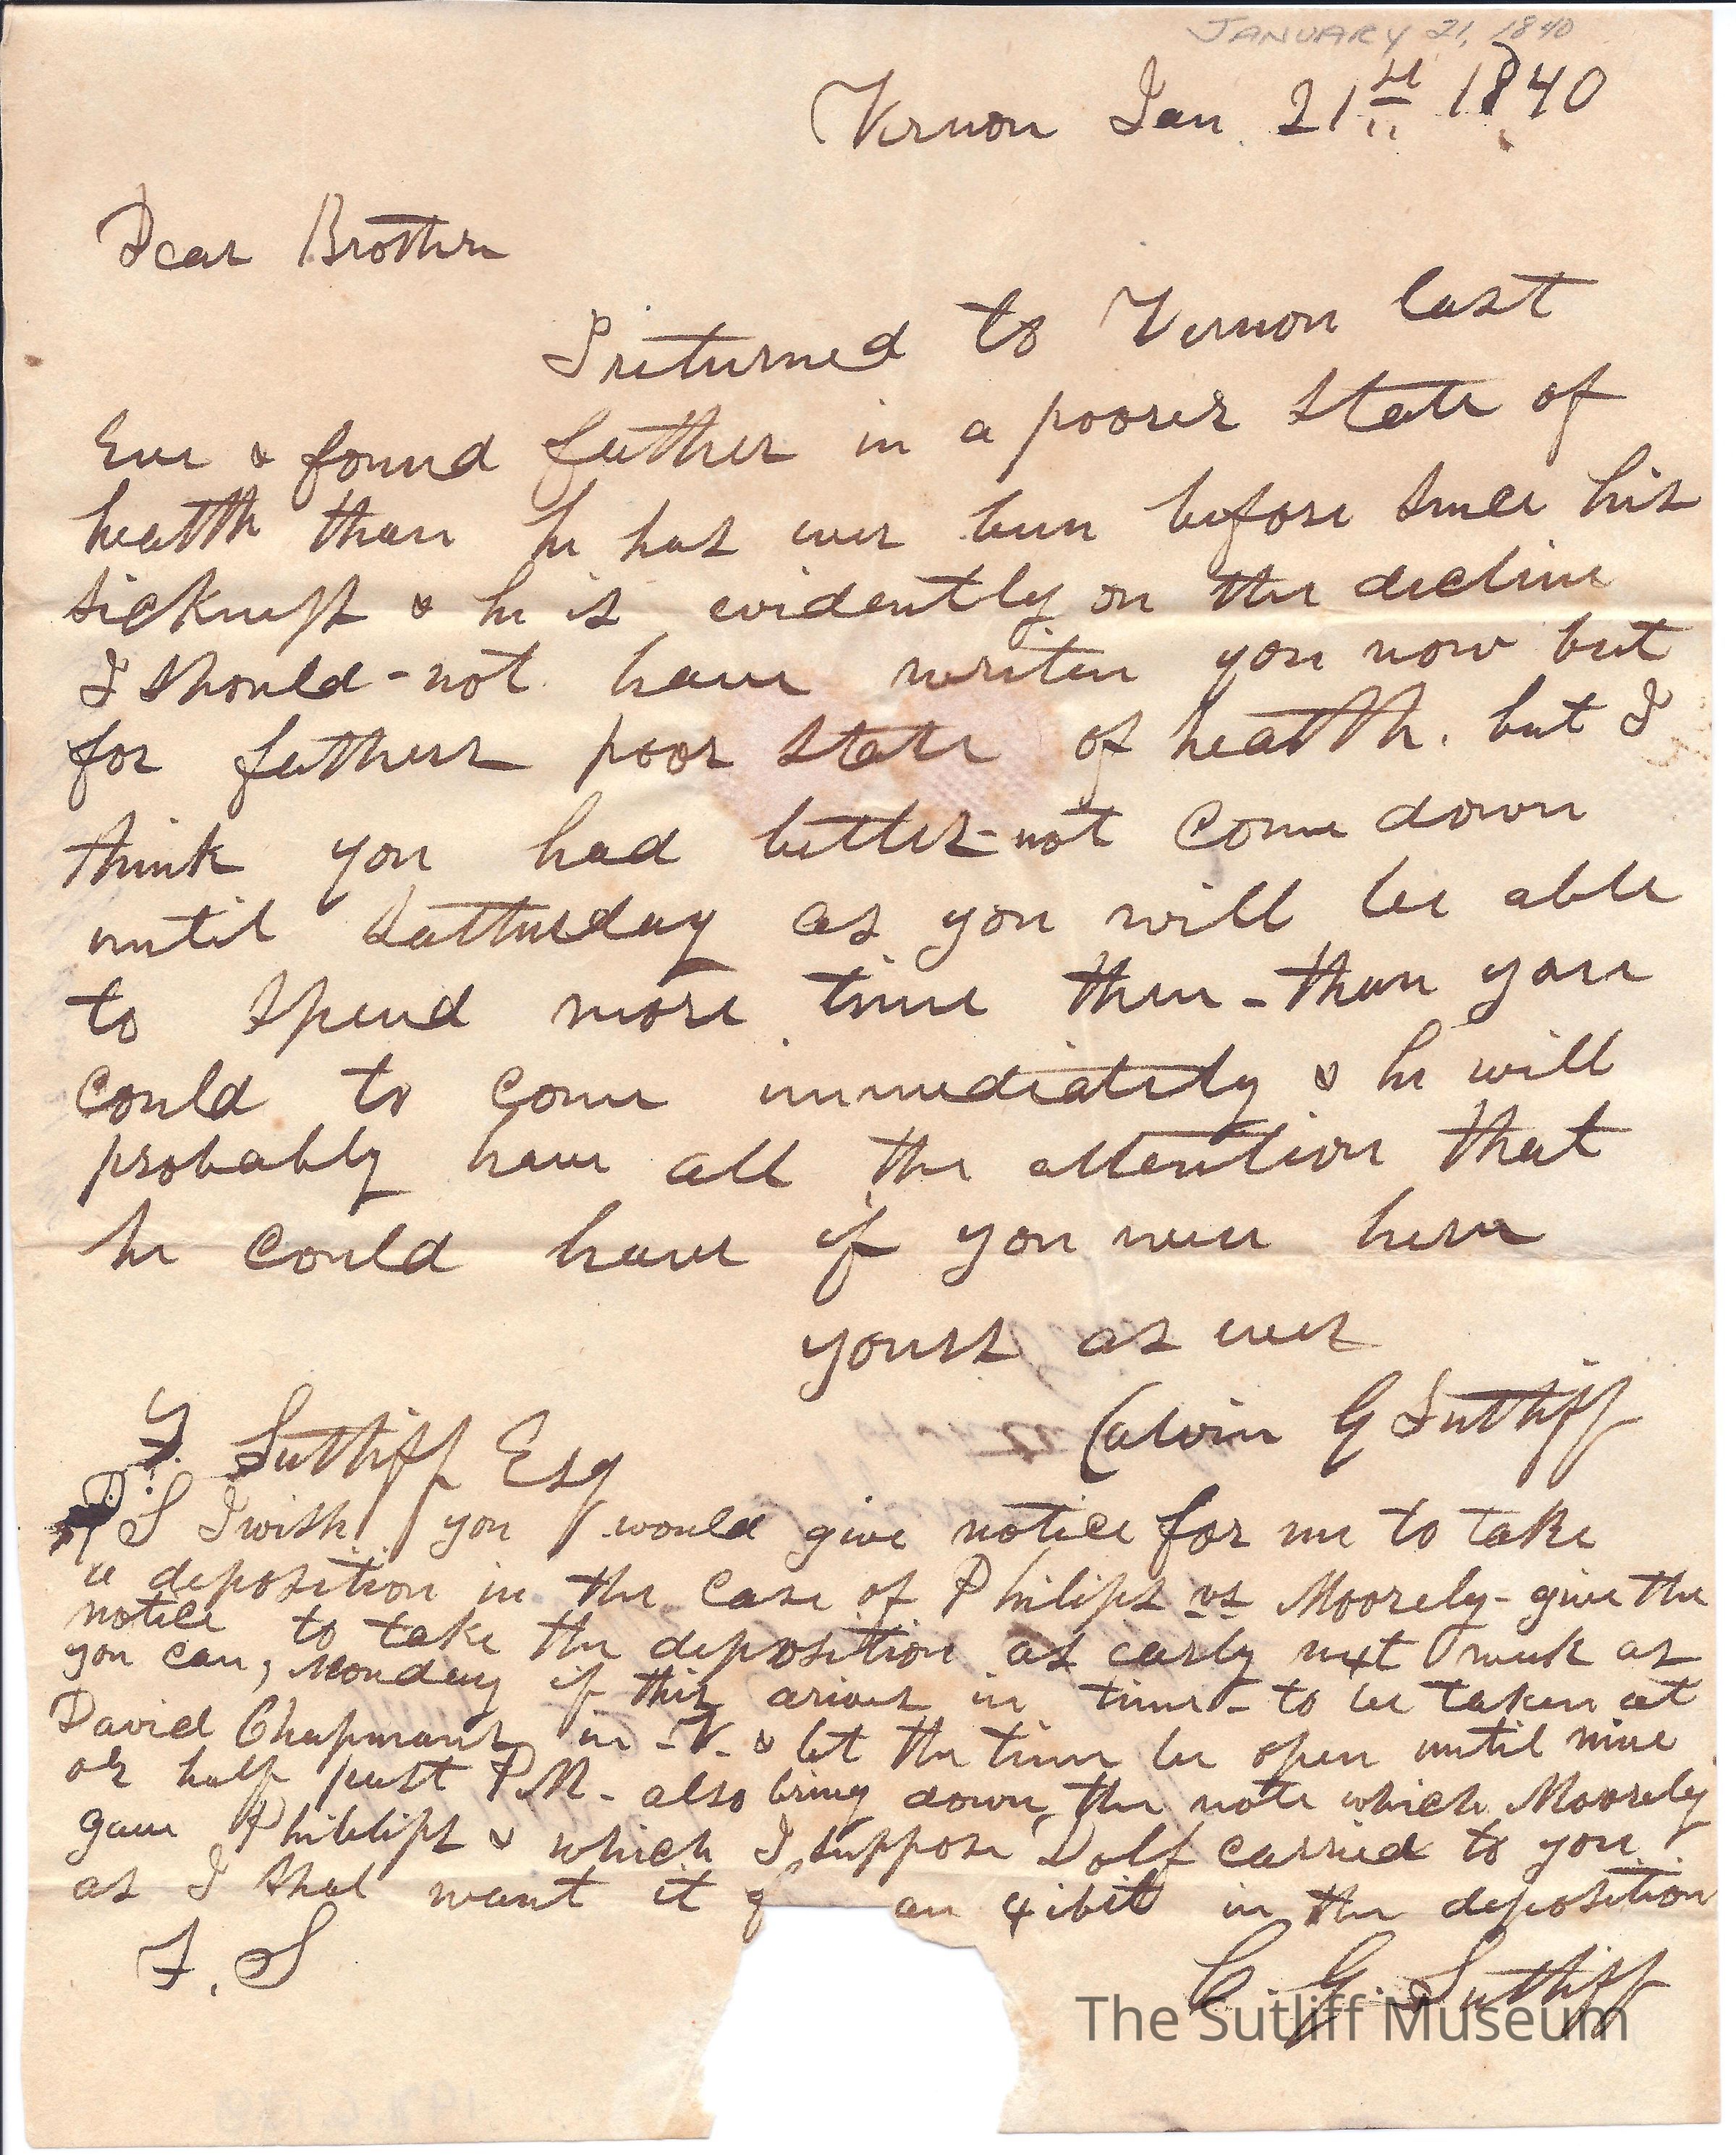 JANUARY 21, 1840
Vernon Jan. 21st 1840
Dear Brother
I returned to Vernon last
Eve & found father in a poorer state of
health than he has ever been before since his
sickness & he is evidently on the decline
I should-not have writen you now but
for fathers poor state of health. but I
think you had better-not come down
until Satturday as you will be able
to spend more time then-than you
could to come immediately & he will
probably have all the attention that
he could have if you were here
yours as ever
Calvin G Sutliff
F. Sutliff Esq
P S I wish you would give notice for me to take
a deposition in the case of Philips vs Moorely- give the
notice to take the deposition as early next week as
you can, Monday if this arives in time- to be taken at
David Chapmans in -V- & let the time be open until nine
or half past P.M. also bring down the note which Moorely
gave Phillips & which I suppose Dolf carried to you.
as I shal want it an exibit in the deposition
F. S
C. G. Sutliff
The Sutliff Museum